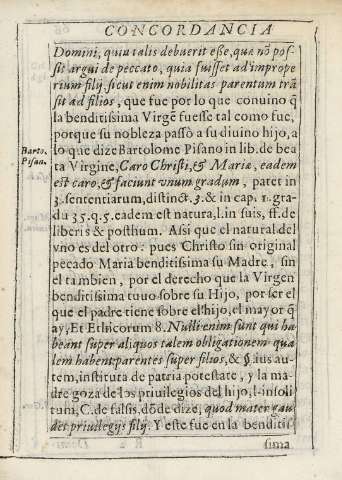 CONCORDANCIA
Domini, quia talis debuerit eße, qua nõ pos-
sit argui de peccato, quia fuisset ad improperium
rium filij. sicut enim nobilitas parentum trã
sit ad filios, que fue por lo que conuino q̃
la benditissima Virgẽ fuesse tal como fue,
porque su nobleza passò a su diuino hijo, a
lo que dize Bartolome Pisano in lib. de bea
ta Virgine, Caro Christi, & Mariæ, eadem
est caro, & faciunt vnum gradum, patet in
3. sententiarum, distinct. 3. & in cap. 1. gra-
du 35. q. 5. eadem est natura, l. in suis, ff. de
liberis & posthum. Asi que el natural del
vno es del otro: pues Christo sin original
pecado Maria benditissima su Madre, sin
el tambien, por el derecho que la Virgen
benditissima tuuo sobre su Hijo, por ser el
que el padre tiene sobre el hijo, el mayor q̃
ay, Et Ethicorum 8. Nulli enim sunt qui ha
beant super aliquos talem obligationem qua
lem habent parentes super filios, & §. ius au-
tem, instituta de patria potestate, y la ma-
dre goza de los priuilegios del hijo, l. insoli-
tum, C. de falsis. dõde dize, quod mater gau
det priuilegijs filij. Y este fue en la benditis-
sima
Barto.
Pisan.